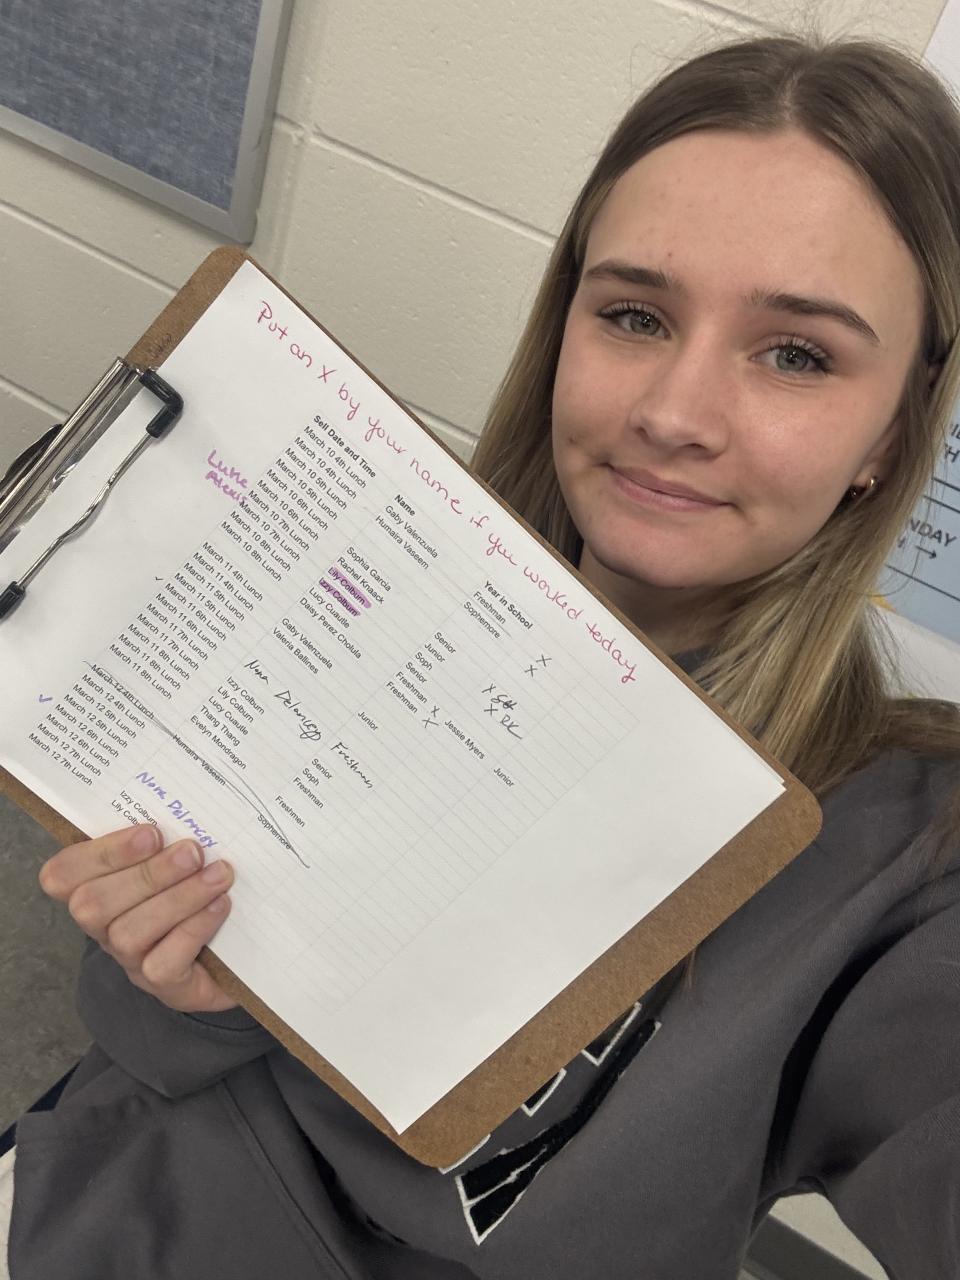 Put an X by your name if you worked today
Sell Date and Time Name Year in School
March 10 4th Lunch Gaby Valenzuela Freshman
March 10 4th Lunch Humaira Vaseem Sophemore X
March 10 5th Lunch X
March 10 5th Lunch Sophia Garcia Senior
March 10 6th Lunch Rachel Knaack Junior
March 10 6th Lunch Lily Colburn Soph X
Luke March 10 7th Lunch Izzy Colburn Senior X RK
March 10 7th Lunch Lucy Cuautle Freshman X Jessie Myers Junior
March 10 8th Lunch Daisy Perez Cholula Freshman X
March 10 8th Lunch
March 11 4th Lunch Gaby Valenzuela
March 11 4th Lunch Valeria Ballines Junior
March 11 5th Lunch
✓ March 11 5th Lunch Nora Delargy Freshmen
March 11 6th Lunch Izzy Colburn Senior
March 11 6th Lunch Lily Colburn Soph
March 11 7th Lunch Lucy Cuautle Freshman
March 11 7th Lunch Thang Thang
March 11 8th Lunch Evelyn Mondragon Freshmen
March 11 8th Lunch
March 12 4th Lunch Humaira Vaseem Sophemore
March 12 4th Lunch
March 12 5th Lunch
✓ March 12 5th Lunch Nora Delargey
March 12 6th Lunch Izzy Colburn
March 12 6th Lunch Lily Colbu
March 12 7th Lunch
March 12 7th Lunch
NDAY